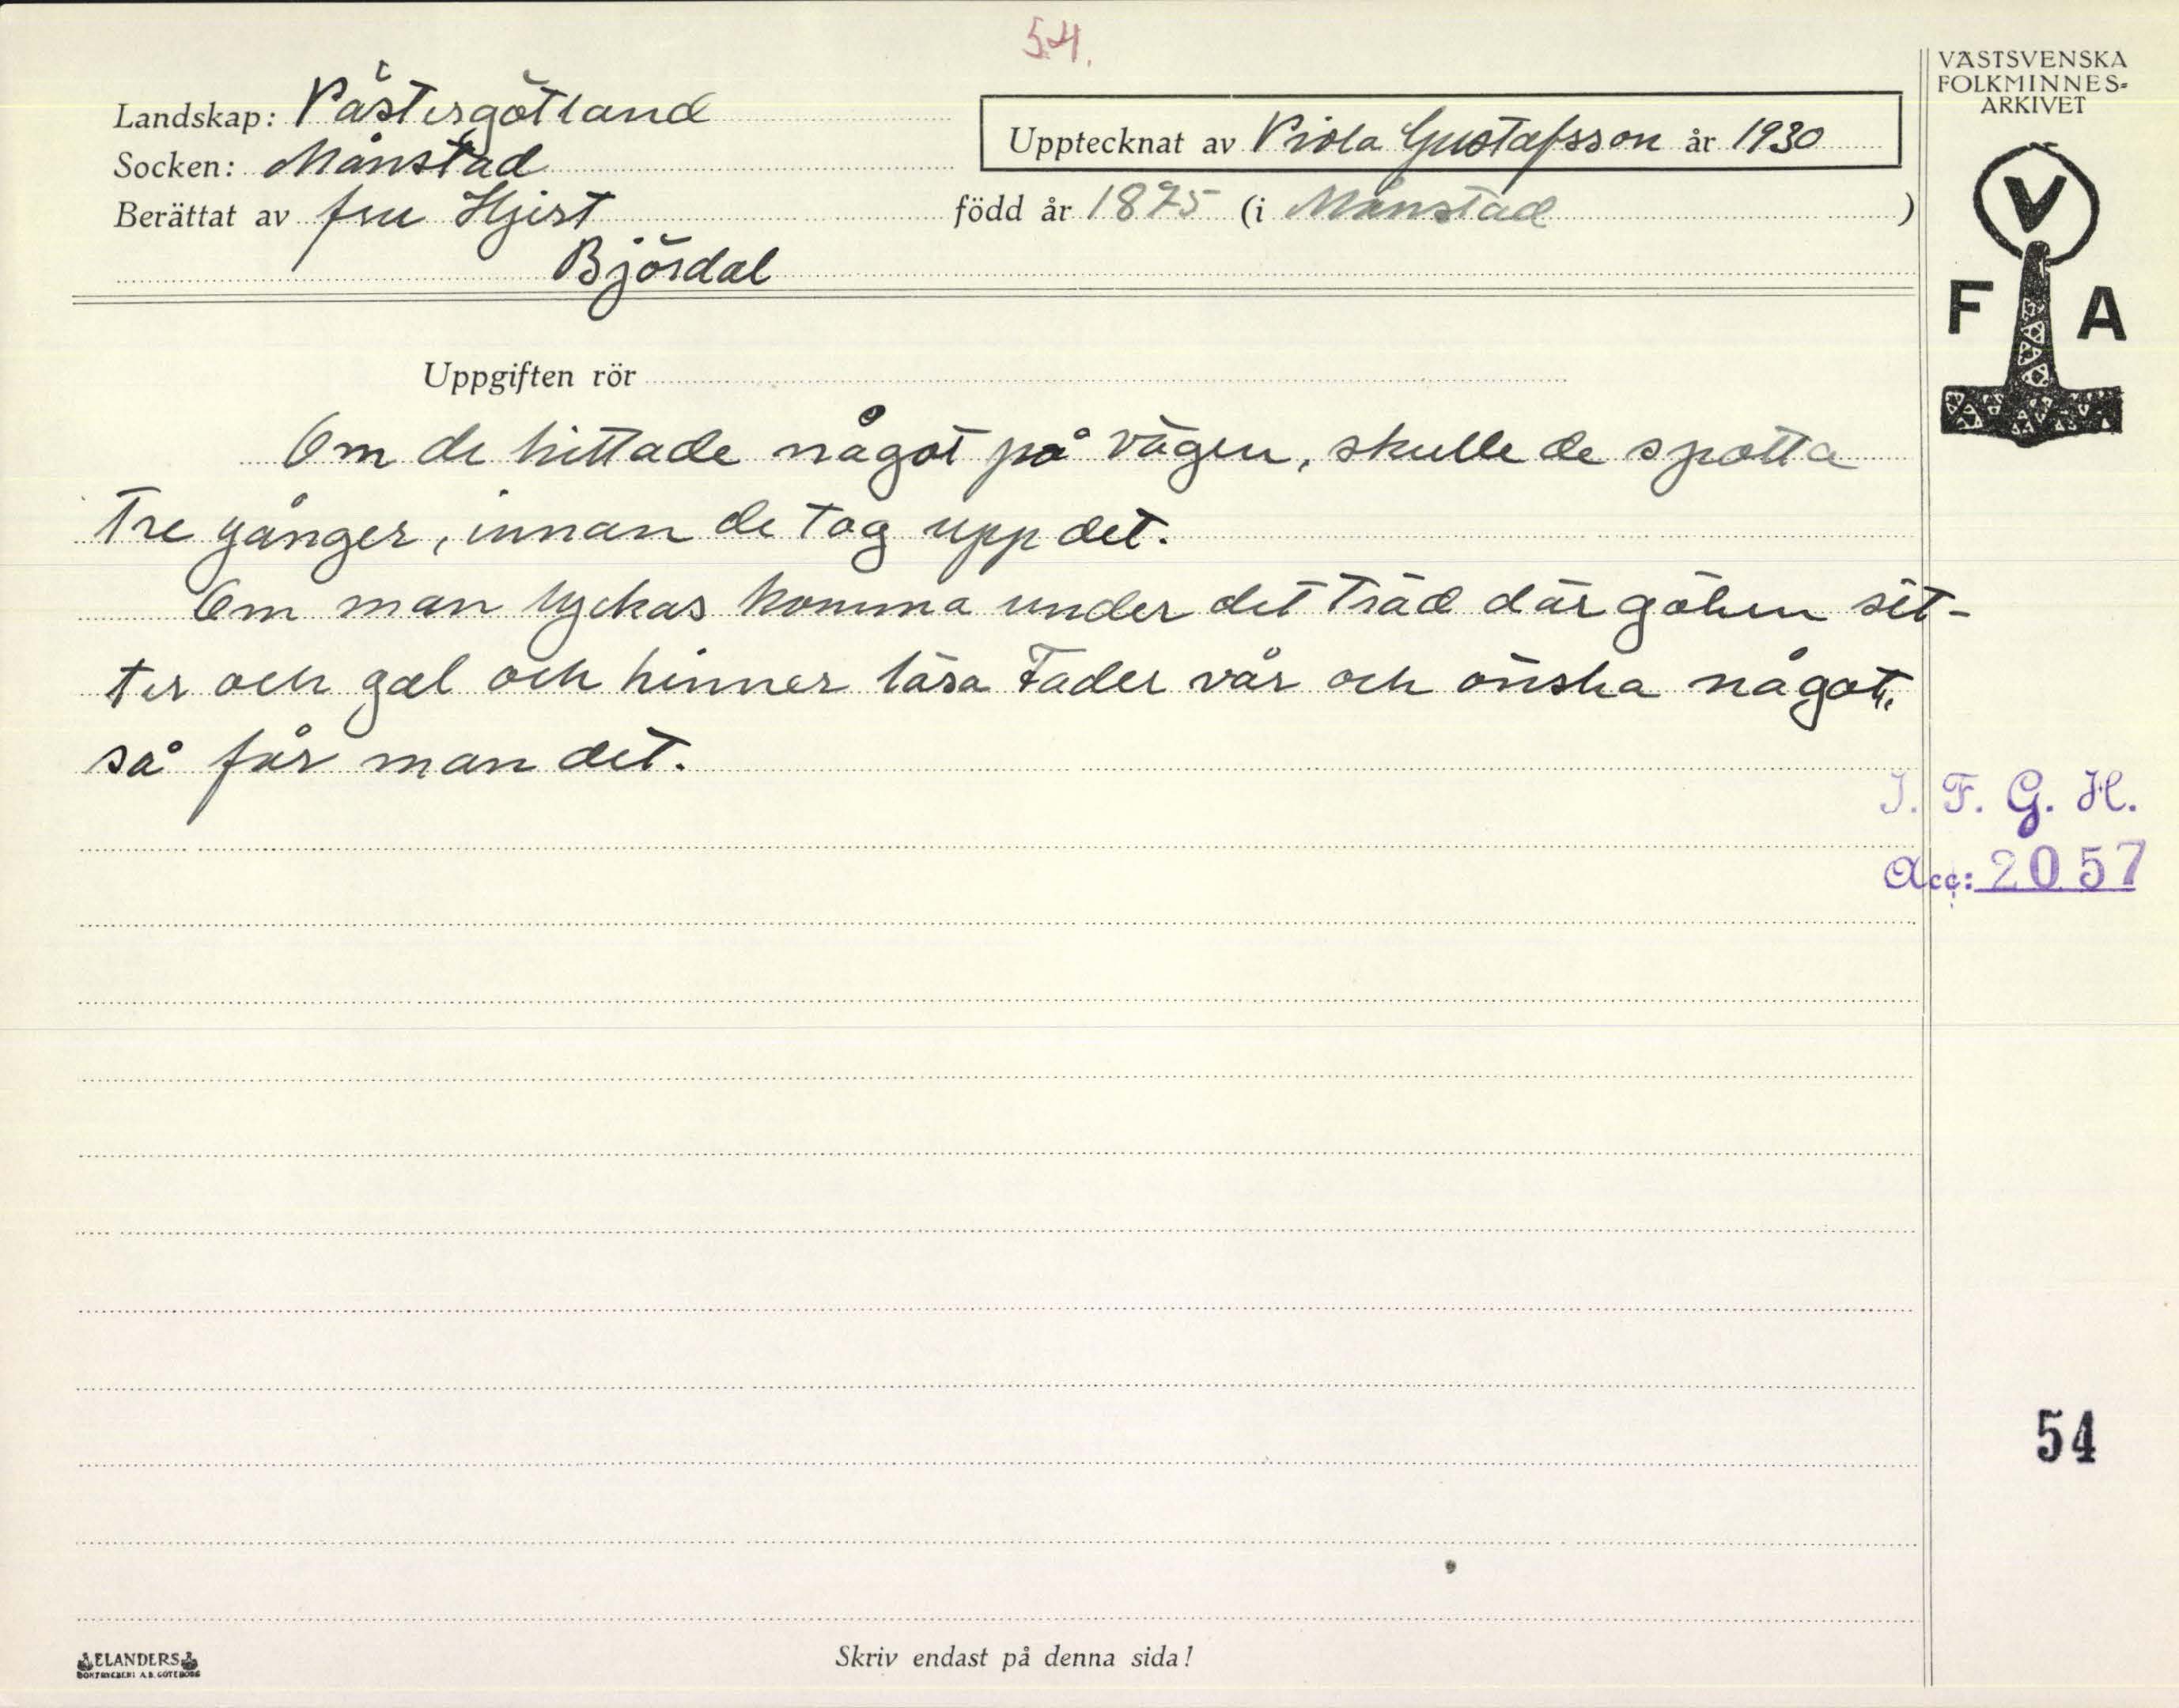 54.
VÄSTSVENSKA
FOLKMINNES-
ARKIVET
Landskap: Västergötland
Upptecknat av Viola Gustafsson år 1930
Socken: Månstad
Berättat av fru Hjert född år 1875 (i Månstad )
Björdal
V
F A
Uppgiften rör
Om de hittade något på vägen, skulle de spotta
tre gånger, innan de tog upp det.
Om man lyckas komma under det träd där göken sit-
ter och gal och hinner läsa Fader vår och önska något,
så får man det.
I. F. G. H.
Acc: 2057
54
ELANDERS
BOKTRYCKERI A.B. GÖTEBORG
Skriv endast på denna sida!